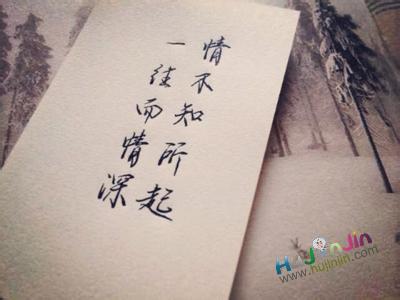 情不知所起
一往而情深
HAJinJin
www.hujinjin.com